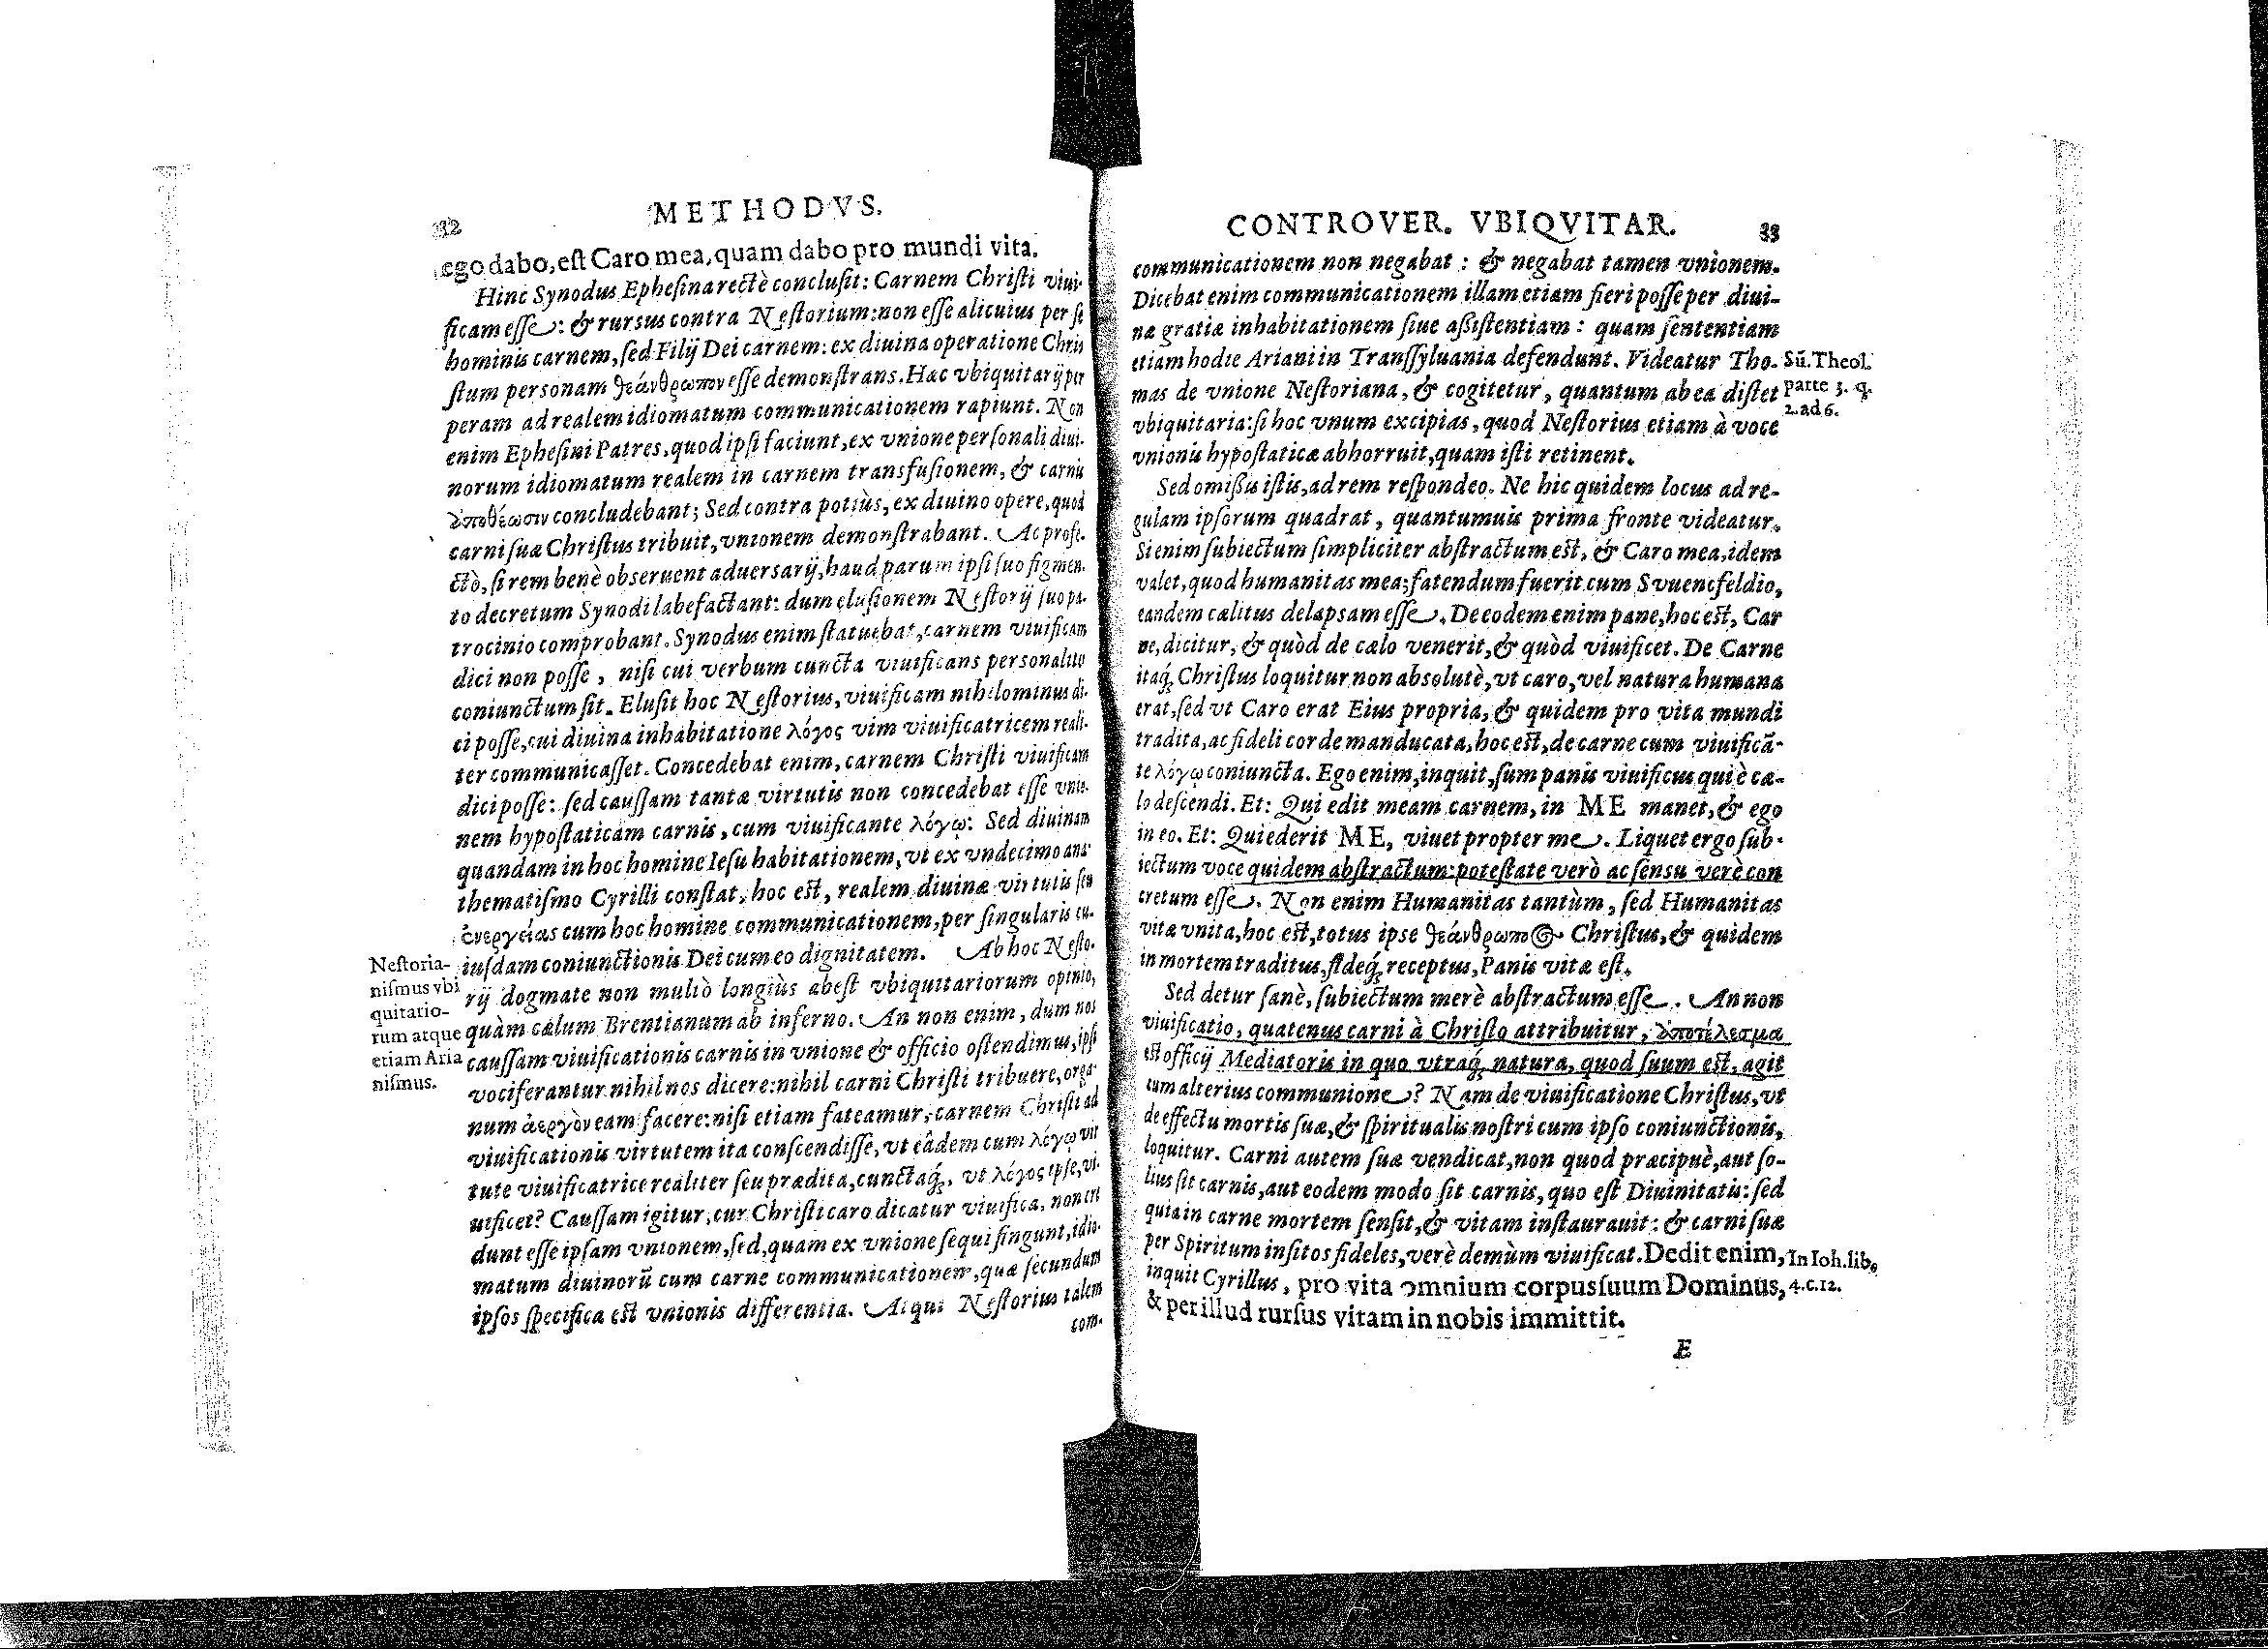 32
METHODVS.
ego dabo, est Caro mea, quam dabo pro mundi vita.
Hinc Synodus Ephesina rectè conclusit: Carnem Christi viui-
ficam esse: & rursus contra Nestorium: non esse alicuius per se
hominis carnem, sed Filij Dei carnem: ex diuina operatione Chri-
stum personam θεάνθρωπον esse demonstrans. Hæc vbiquitarij per
peram ad realem idiomatum communicationem rapiunt. Non
enim Ephesini Patres, quod ipsi faciunt, ex vnione personali diui-
norum idiomatum realem in carnem transfusionem, & carnis
ἀποθέωσιν concludebant; Sed contra potiùs, ex diuino opere, quod
carni suæ Christus tribuit, vnionem demonstrabant. Ac profe-
ctò, si rem benè obseruent aduersarij, haud parum ipsi suo figmen-
to decretum Synodi labefactant: dum elusionem Nestorij suo pa-
trocinio comprobant. Synodus enim statuebat, carnem viuificam
dici non posse, nisi cui verbum cuncta viuificans personaliter
coniunctum sit. Elusit hoc Nestorius, viuificam nihilominus di-
ci posse, cui diuina inhabitatione λόγος vim viuificatricem reali-
ter communicasset. Concedebat enim, carnem Christi viuificam
dici posse: sed caussam tantæ virtutis non concedebat esse vnio-
nem hypostaticam carnis, cum viuificante λόγῳ: Sed diuinam
quandam in hoc homine Iesu habitationem, vt ex vndecimo ana-
thematismo Cyrilli constat, hoc est, realem diuinæ virtutis seu
ἐνεργείας cum hoc homine communicationem, per singularis cu-
iusdam coniunctionis Dei cum eo dignitatem. Ab hoc Nesto-
rij dogmate non multò longiùs abest vbiquitariorum opinio,
quàm cælum Brentianum ab inferno. An non enim, dum nos
caussam viuificationis carnis in vnione & officio ostendimus, ipsi
vociferantur nihil nos dicere: nihil carni Christi tribuere, orga-
num ἀεργὸν eam facere: nisi etiam fateamur, carnem Christi ad
viuificationis virtutem ita conscendisse, vt eâdem cum λόγῳ vir
tute viuificatrice realiter seu prædita, cunctaq́;, vt λόγος ipse, vi-
uificet? Caussam igitur, cur Christi caro dicatur viuifica, non cre
dunt esse ipsam vnionem, sed, quam ex vnione sequi fingunt, idio-
matum diuinorũ cum carne communicationem, quæ secundum
ipsos specifica est vnionis differentia. Atqui Nestorius talem
com-
Nestoria-
nismus vbi
quitario-
rum atque
etiam Aria
nismus.
CONTROVER. VBIQVITAR.
33
communicationem non negabat: & negabat tamen vnionem.
Dicebat enim communicationem illam etiam fieri posse per diui-
næ gratiæ inhabitationem siue assistentiam: quam sententiam
etiam hodie Ariani in Transsyluania defendunt. Videatur Tho-
mas de vnione Nestoriana, & cogitetur, quantum ab ea distet
vbiquitaria: si hoc vnum excipias, quod Nestorius etiam à voce
vnionis hypostaticæ abhorruit, quam isti retinent.
Sũ. Theol.
parte 3. q.
2. ad 6.
Sed omissis istis, ad rem respondeo. Ne hic quidem locus ad re-
gulam ipsorum quadrat, quantumuis prima fronte videatur.
Si enim subiectum simpliciter abstractum est, & Caro mea, idem
valet, quod humanitas mea; fatendum fuerit cum Svuencfeldio,
eandem cælitus delapsam esse. De eodem enim pane, hoc est, Car
ne, dicitur, & quòd de cælo venerit, & quòd viuificet. De Carne
itaq́; Christus loquitur non absolutè, vt caro, vel natura humana
erat, sed vt Caro erat Eius propria, & quidem pro vita mundi
tradita, ac fideli corde manducata, hoc est, de carne cum viuificã-
te λόγῳ coniuncta. Ego enim, inquit, sum panis viuificus qui è cæ-
lo descendi. Et: Qui edit meam carnem, in ME manet, & ego
in eo. Et: Qui ederit ME, viuet propter me. Liquet ergo sub-
iectum voce quidem abstractum: potestate verò ac sensu verè con
cretum esse. Non enim Humanitas tantùm, sed Humanitas
vitæ vnita, hoc est, totus ipse θεάνθρωπος Christus, & quidem
in mortem traditus, fideq́; receptus, Panis vitæ est.
Sed detur sanè, subiectum merè abstractum esse. An non
viuificatio, quatenus carni à Christo attribuitur, ἀποτέλεσμα
est officij Mediatoris in quo vtraq́; natura, quod suum est, agit
cum alterius communione? Nam de viuificatione Christus, vt
de effectu mortis suæ, & spiritualis nostri cum ipso coniunctionis,
loquitur. Carni autem suæ vendicat, non quod præcipuè, aut so-
lius sit carnis, aut eodem modo sit carnis, quo est Diuinitatis: sed
quia in carne mortem sensit, & vitam instaurauit: & carni suæ
per Spiritum insitos fideles, verè demùm viuificat. Dedit enim,
inquit Cyrillus, pro vita omnium corpus suum Dominus,
& per illud rursus vitam in nobis immittit.
In Ioh. lib.
4. c. 12.
E